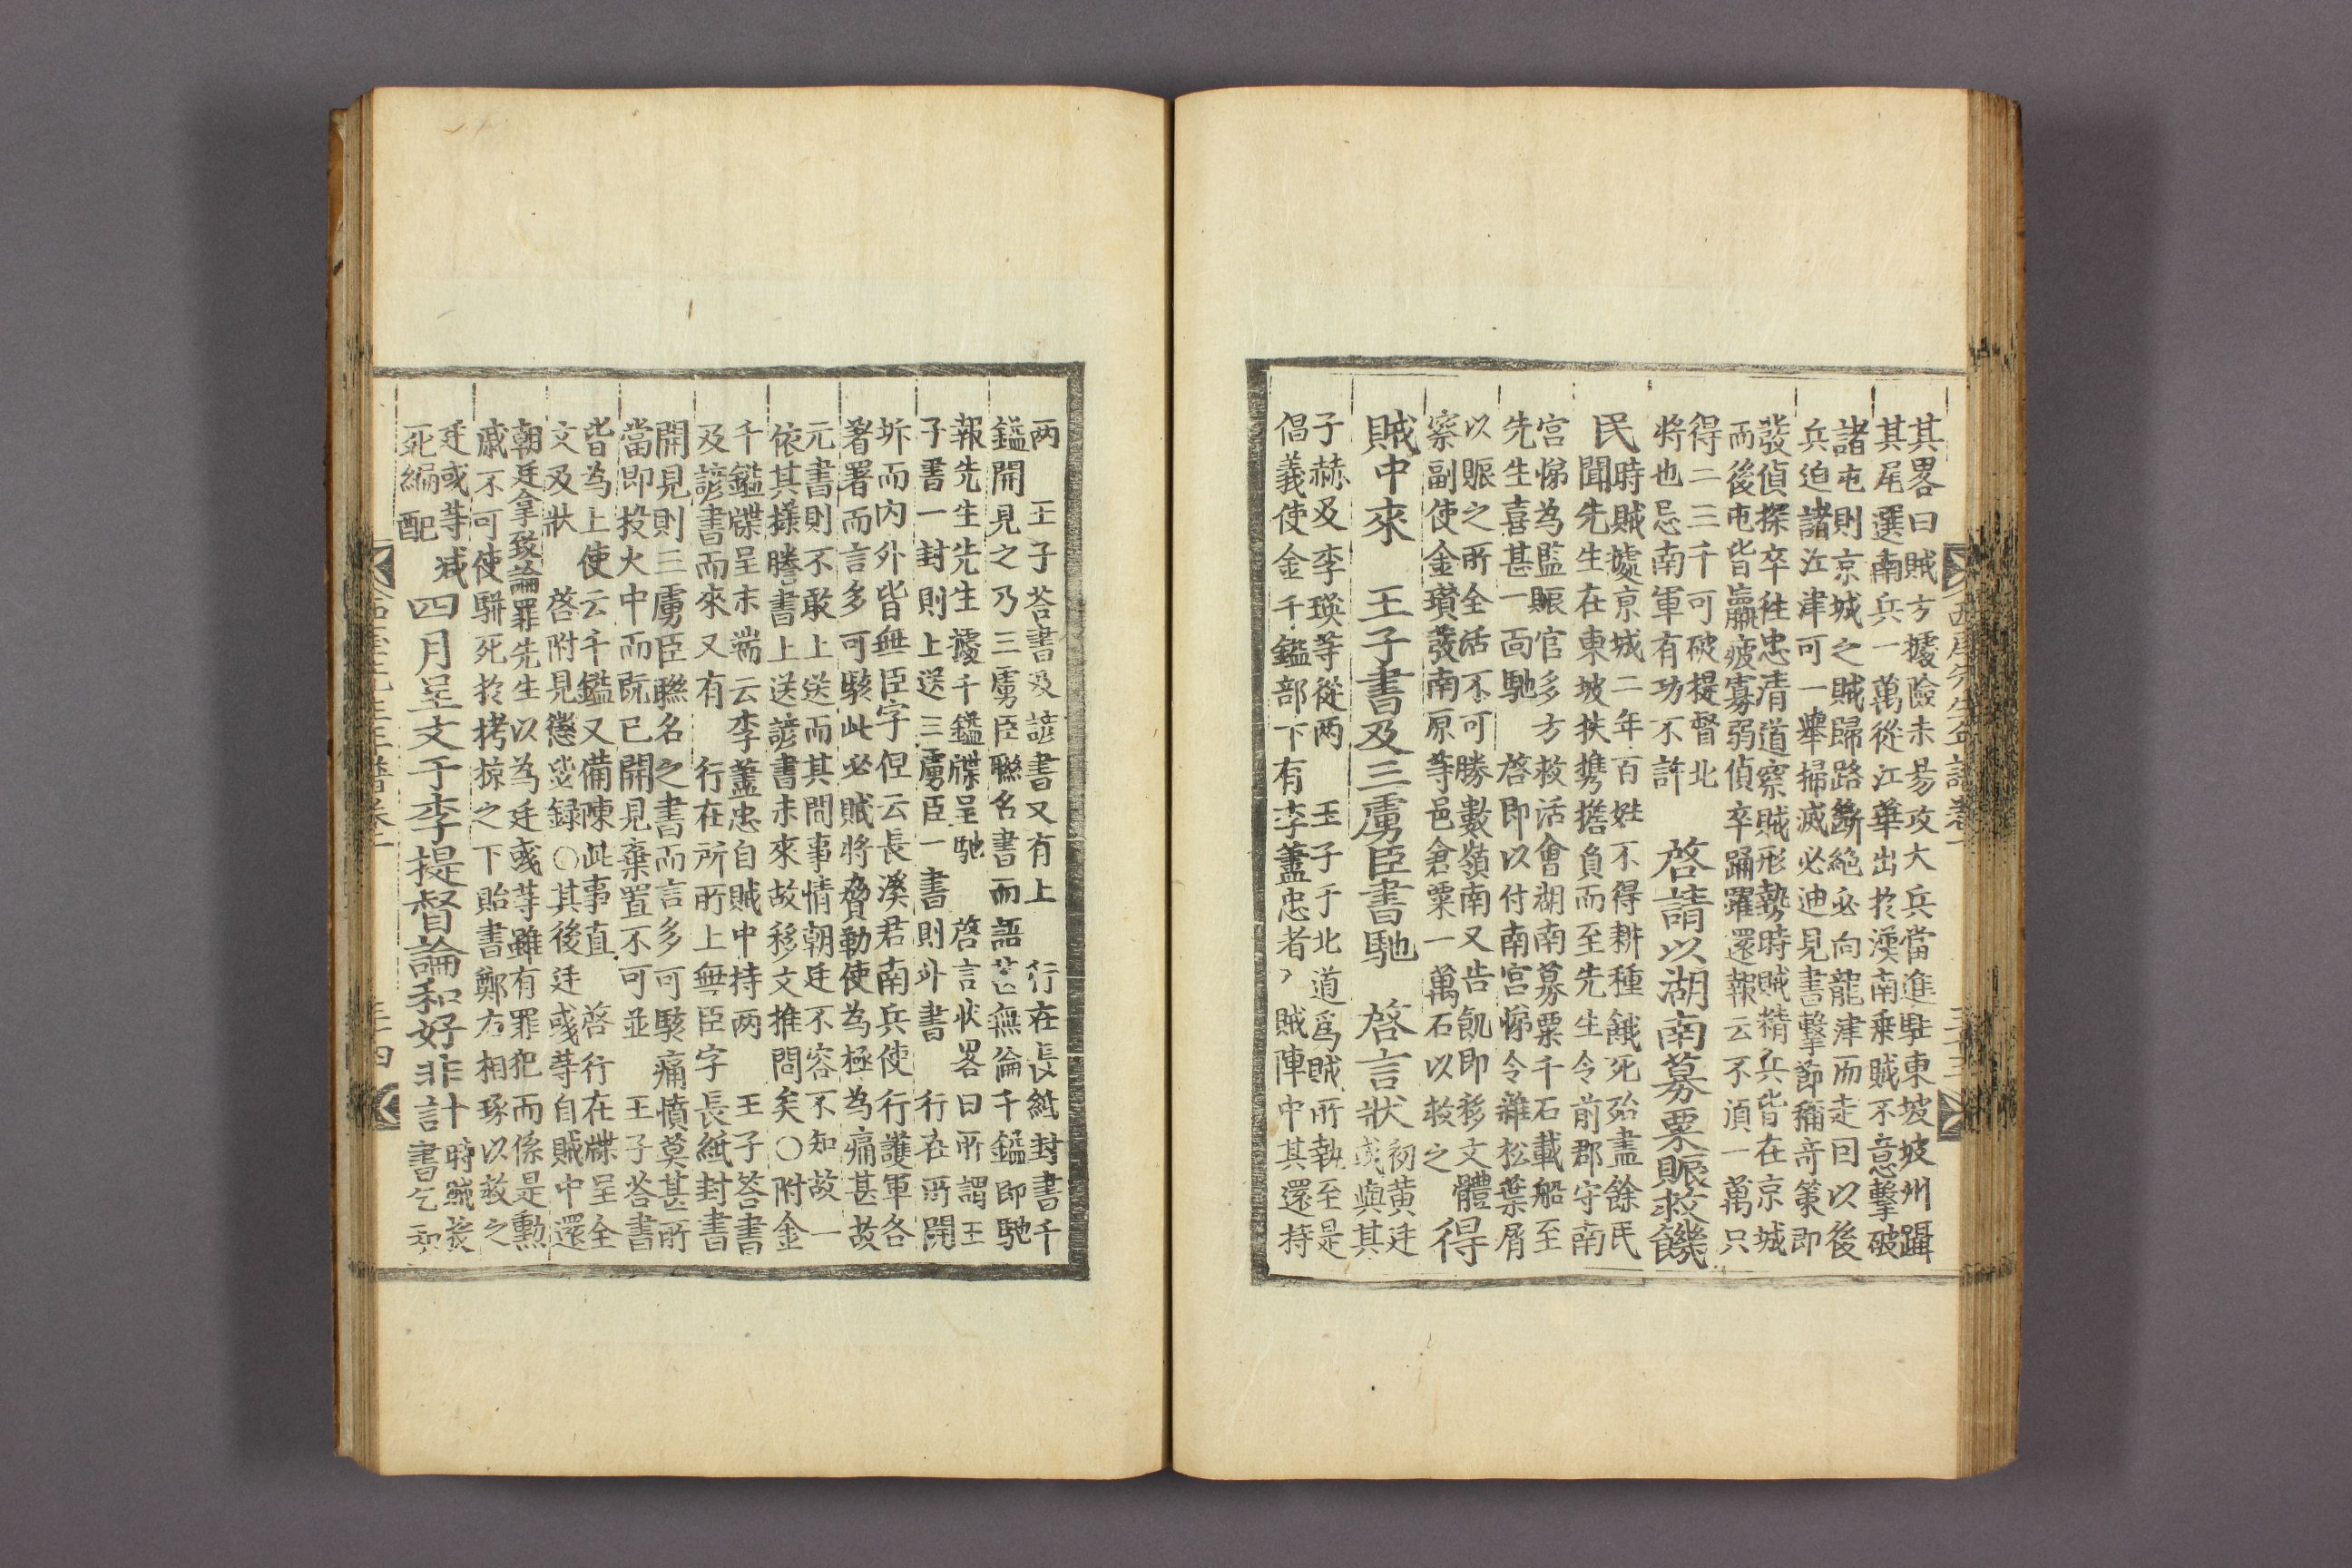 其畧曰賊方據險未易攻大兵當進駐東坡坡州躡
其尾選南兵一萬從江華出於漢南乗賊不意擊破
諸屯則京城之賊歸路斷絶必向龍津而走囙以後
兵迫諸江津可一擧掃滅必迪見書擊節稱奇策即
發偵探卒徃忠清道察賊形勢時賊精兵皆在京城
而後屯皆羸疲寡弱偵卒踊躍還報云不湏一萬只
得二三千可破提督北
將也忌南軍有功不許
啓請以湖南募粟賑救饑
民
時賊據京城二年百姓不得耕種餓死殆盡餘民
聞先生在東坡扶携擔負而至先生令前郡守南
宫悌為監賑官多方救活會湖南募粟千石載船至
先生喜甚一面馳 啓即以付南宫悌令雜松葉屑
以賑之所全活不可勝數嶺南又告飢即移文體
察副使金瓚發南原等邑倉粟一萬石以救之
得
賊中來 王子書及三虜臣書馳 啓言狀
初黄廷彧與其
子赫及李瑛等從两 王子于北道爲賊所執至是
倡義使金千鎰部下有李藎忠者入賊陣中其還持
两 王子荅書及諺書又有上 行在長紙封書千
鎰開見之乃三虜臣聯名書而語 無倫千鎰即馳
報先生先生據千鎰牒呈馳 啓言状畧曰所謂王
子書一封則上送三虜臣一書則外書 行在所開
坼而内外皆無臣字但云長溪君南兵使行護軍各
着署而言多可駭此必賊將脅勒使為極為痛甚故
元書則不敢上送而其問事情朝廷不容不知故一
依其㨾謄書上送諺書未來故移文推問矣○附金
千鎰牒呈末端云李藎忠自賊中持两 王子荅書
及諺書而來又有 行在所所上無臣字長紙封書
開見則三虜臣聯名之書而言多可駭痛憤莫甚所
當即投火中而既已開見棄置不可並 王子荅書
皆為上使云千鎰又備陳此事直 啓行在牒呈全
文及狀 啓附見懲毖録○其後廷彧等自賊中還
朝廷拿致論罪先生以為廷彧等雖有罪犯而係是勲
戚不可使騈死於拷掠之下貽書鄭左相琢以救之
廷彧等减
死編配
四月呈文于李提督論和好非計
時賊
書乞和